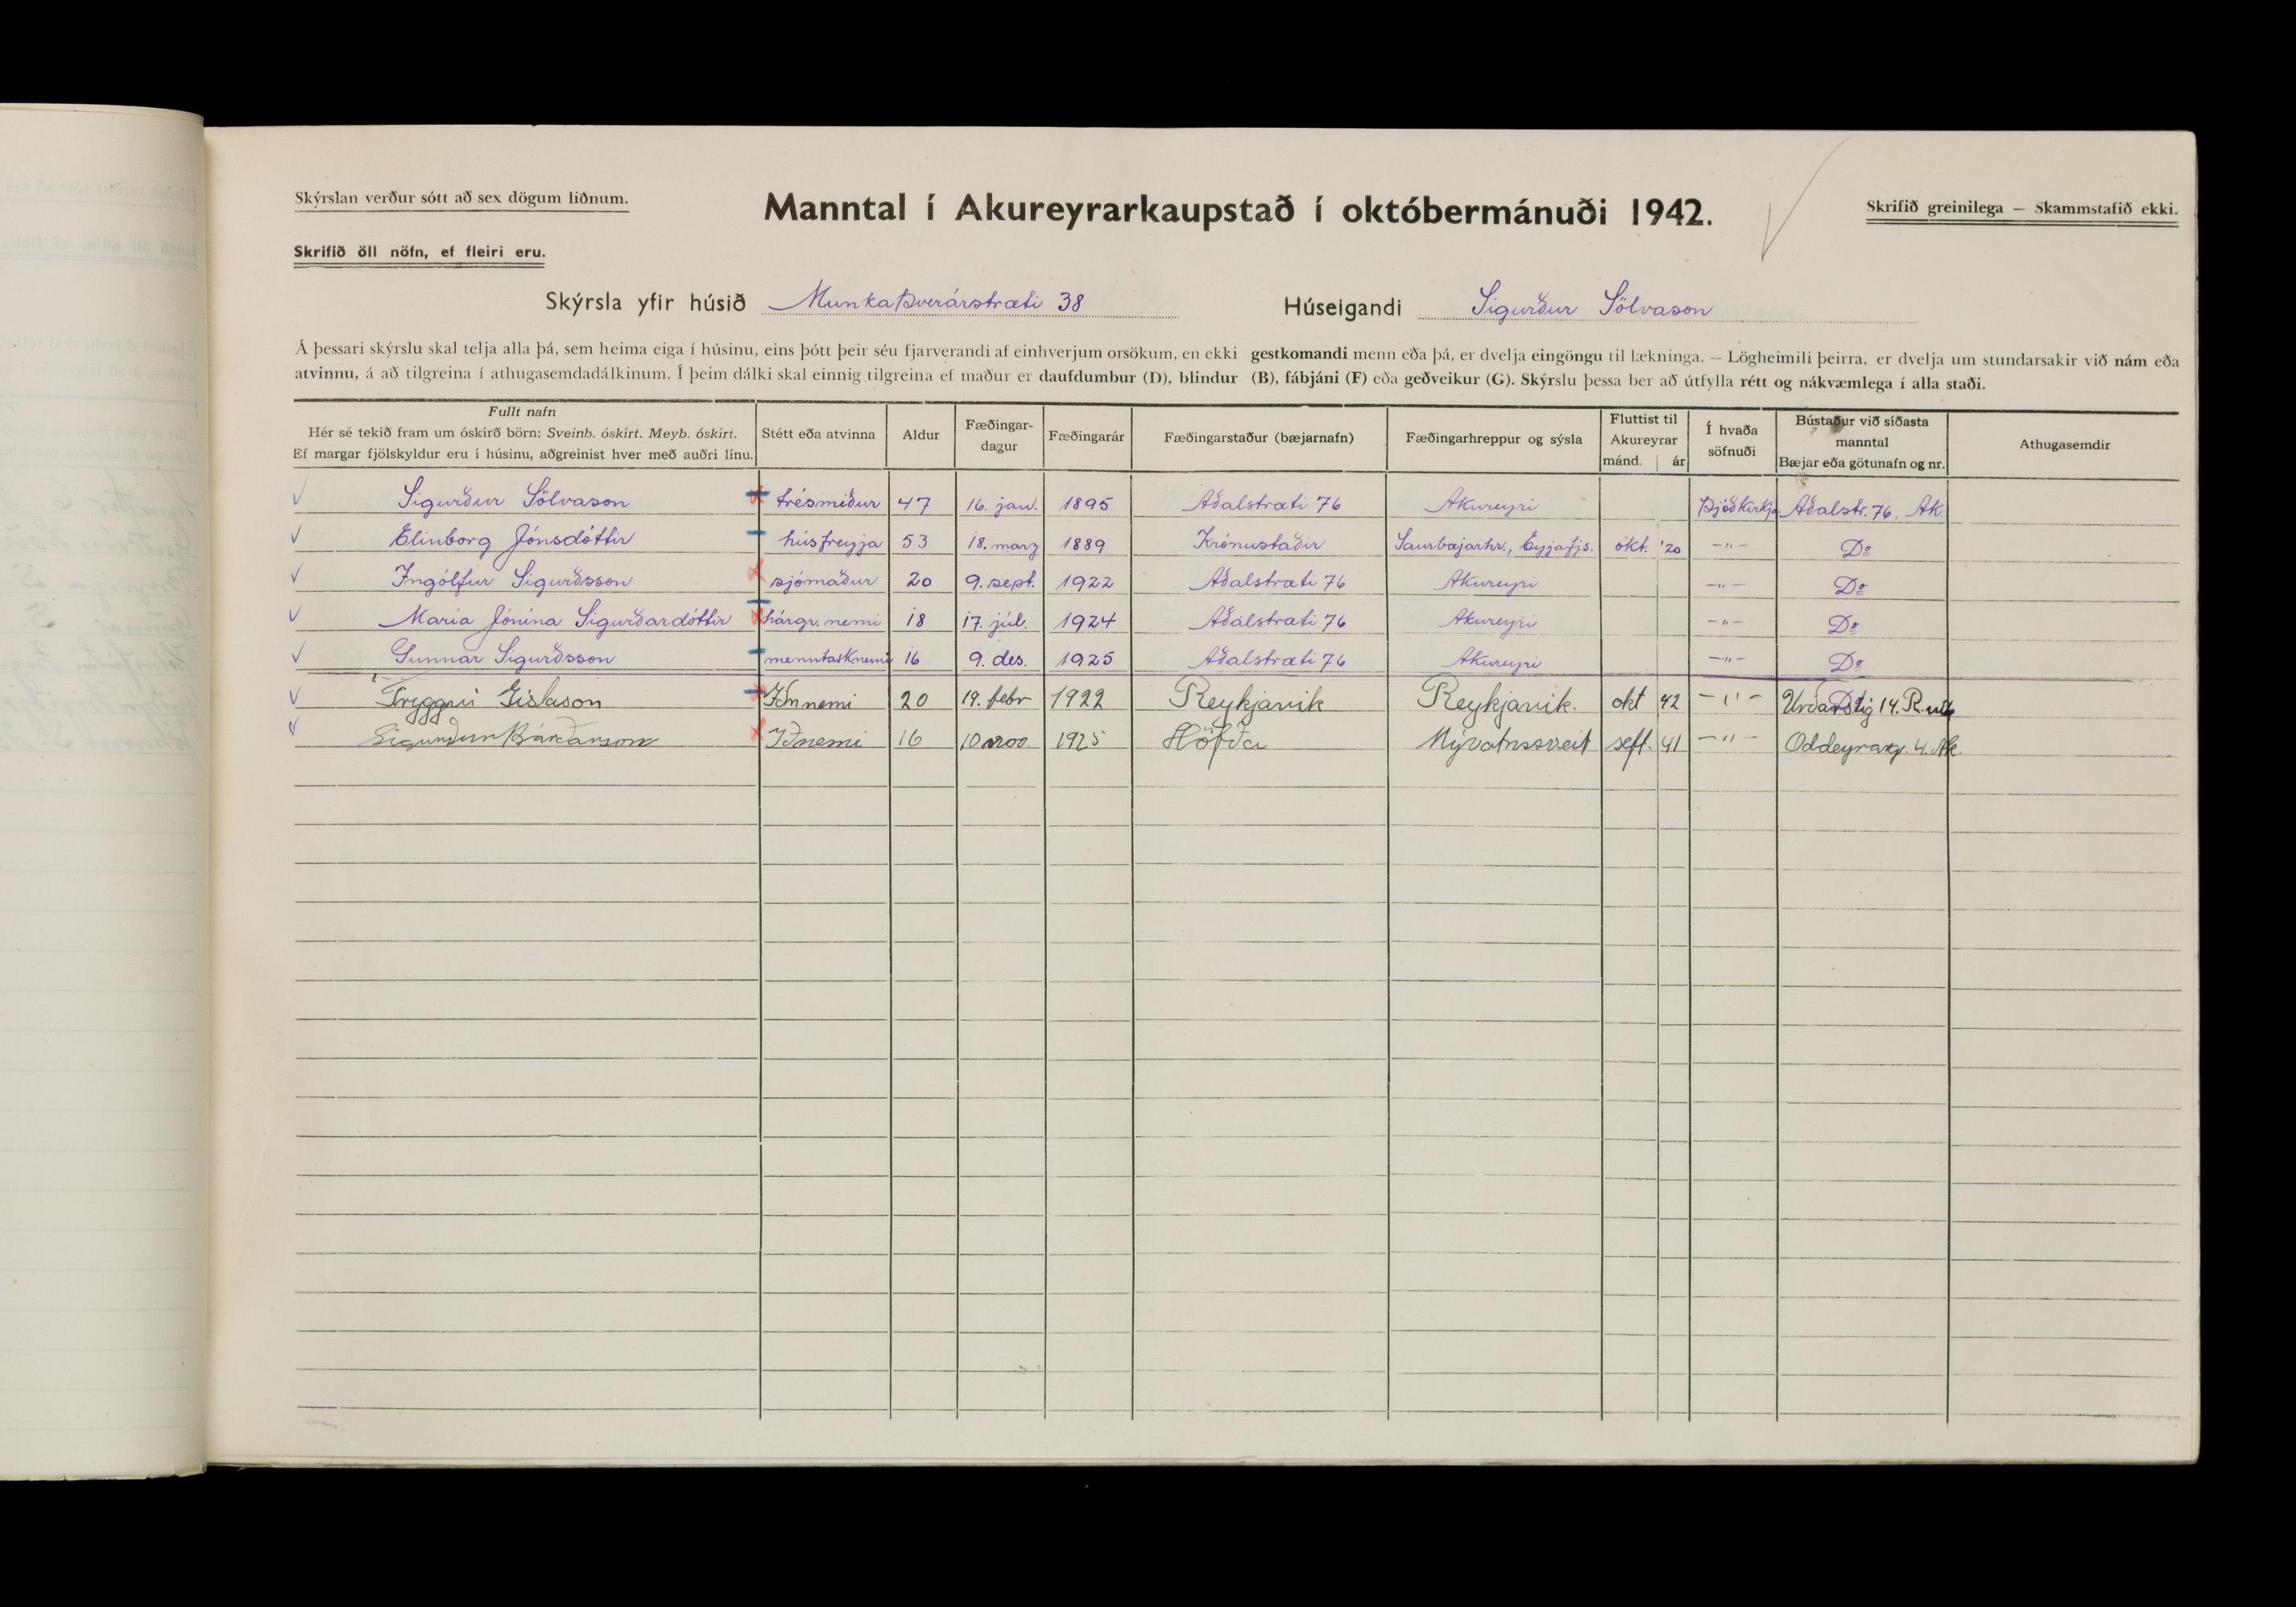 Skýrslan verður sótt að sex dögum liðnum.
Manntal í Akureyrarkaupstað í októbermánuði 1942.
Skrifið greinilega — Skammstafið ekki.
Skrifið öll nöfn, ef fleiri eru.
Skýrsla yfir húsið Munkaþverárstræti 38 Húseigandi Sigurður Sölvason
Á þessari skýrslu skal telja alla þá, sem heima eiga í húsinu, eins þótt þeir séu fjarverandi af einhverjum orsökum, en ekki gestkomandi menn eða þá, er dvelja eingöngu til lækninga. — Lögheimili þeirra, er dvelja um stundarsakir við nám eða
atvinnu, á að tilgreina í athugasemdadálkinum. Í þeim dálki skal einnig tilgreina ef maður er daufdumbur (D), blindur (B), fábjáni (F) eða geðveikur (G). Skýrslu þessa ber að útfylla rétt og nákvæmlega í alla staði.
Fullt nafn
Hér sé tekið fram um óskírð börn: Sveinb. óskírt. Meyb. óskírt.
Ef margar fjölskyldur eru í húsinu, aðgreinist hver með auðri línu.
Stétt eða atvinna
Aldur
Fæðingar-
dagur
Fæðingarár
Fæðingarstaður (bæjarnafn)
Fæðingarhreppur og sýsla
Fluttist til
Akureyrar
mánd. ár
Í hvaða
söfnuði
Bústaður við síðasta
manntal
Bæjar eða götunafn og nr.
Athugasemdir
Sigurður Sölvason trésmiður 47 16. jan. 1895 Aðalstræti 76 Akureyri Þjóðkirkja Aðalstr. 76, Ak.
Elinborg Jónsdóttir húsfreyja 53 18. marz 1889 Krónustaðir Saurbæjarhr., Eyjafjs. okt. '20 —„— Do
Ingólfur Sigurðsson sjómaður 20 9. sept. 1922 Aðalstræti 76 Akureyri —„— Do
María Jónína Sigurðardóttir hárgr. nemi 18 17. júl. 1924 Aðalstræti 76 Akureyri —„— Do
Gunnar Sigurðsson menntask.nemi 16 9. des. 1925 Aðalstræti 76 Akureyri —„— Do
Tryggvi Gíslason Iðnnemi 20 19. febr 1922 Reykjavik Reykjavik. okt 42 —„— Urðarstig 14. R.vik
Sigurður Bárðarson Iðnemi 16 10 1925 Höfða Mývatnssveit sept. 41 —„— Oddeyrarg. 4. Ak.